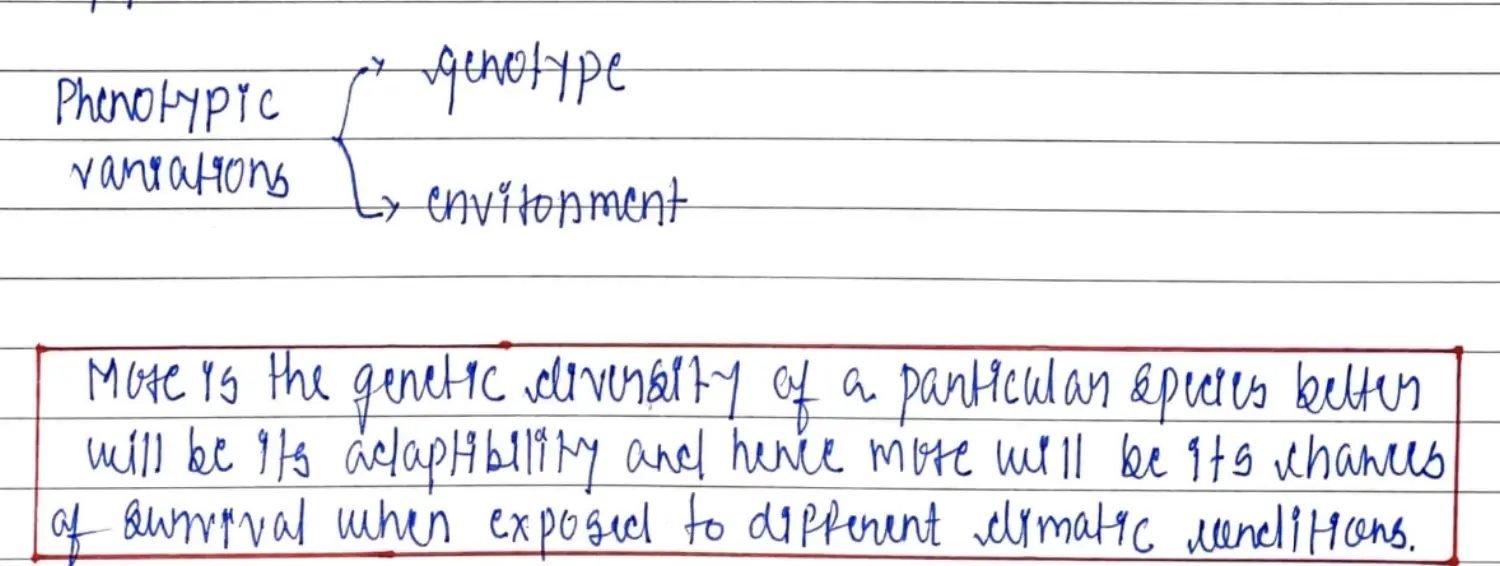 genotype
Phenotypic
variations
environment
More is the genetic diversity of a particular species better
will be its adaptibility and hence more will be its chances
of survival when exposed to different climatic conditions.